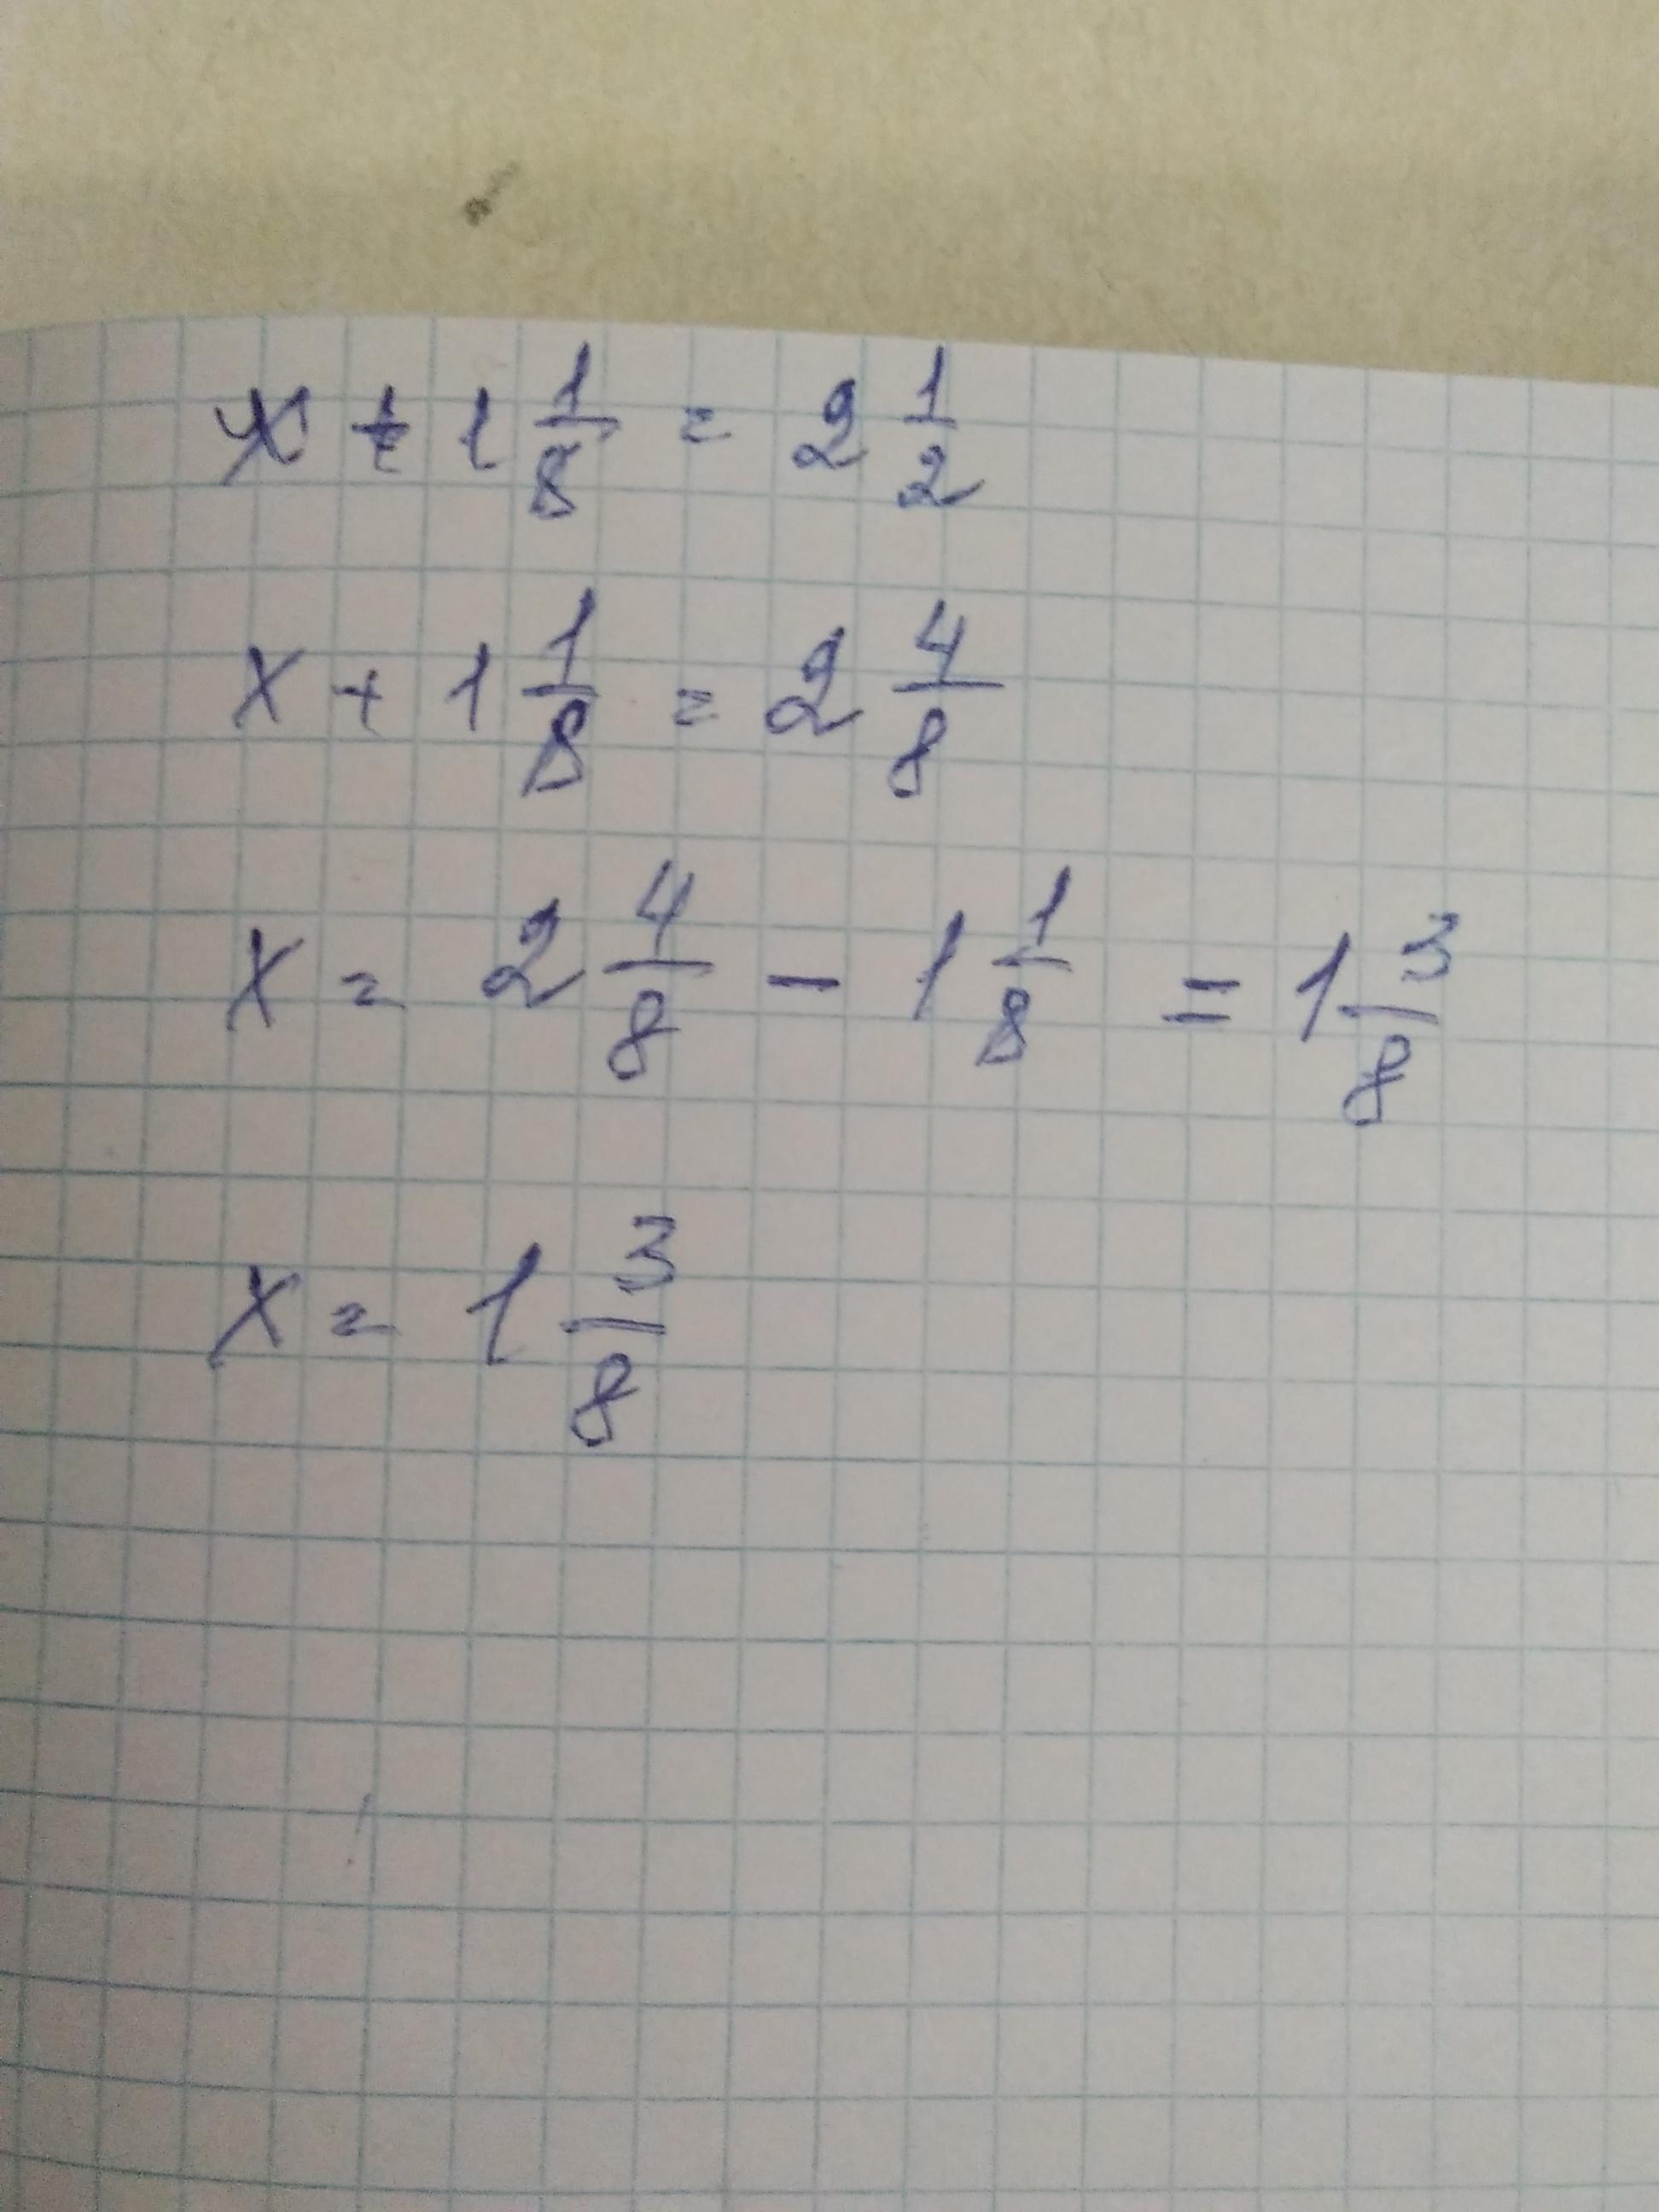 x + 1 1/8 = 2 1/2
x + 1 1/8 = 2 4/8
x = 2 4/8 - 1 1/8 = 1 3/8
x = 1 3/8